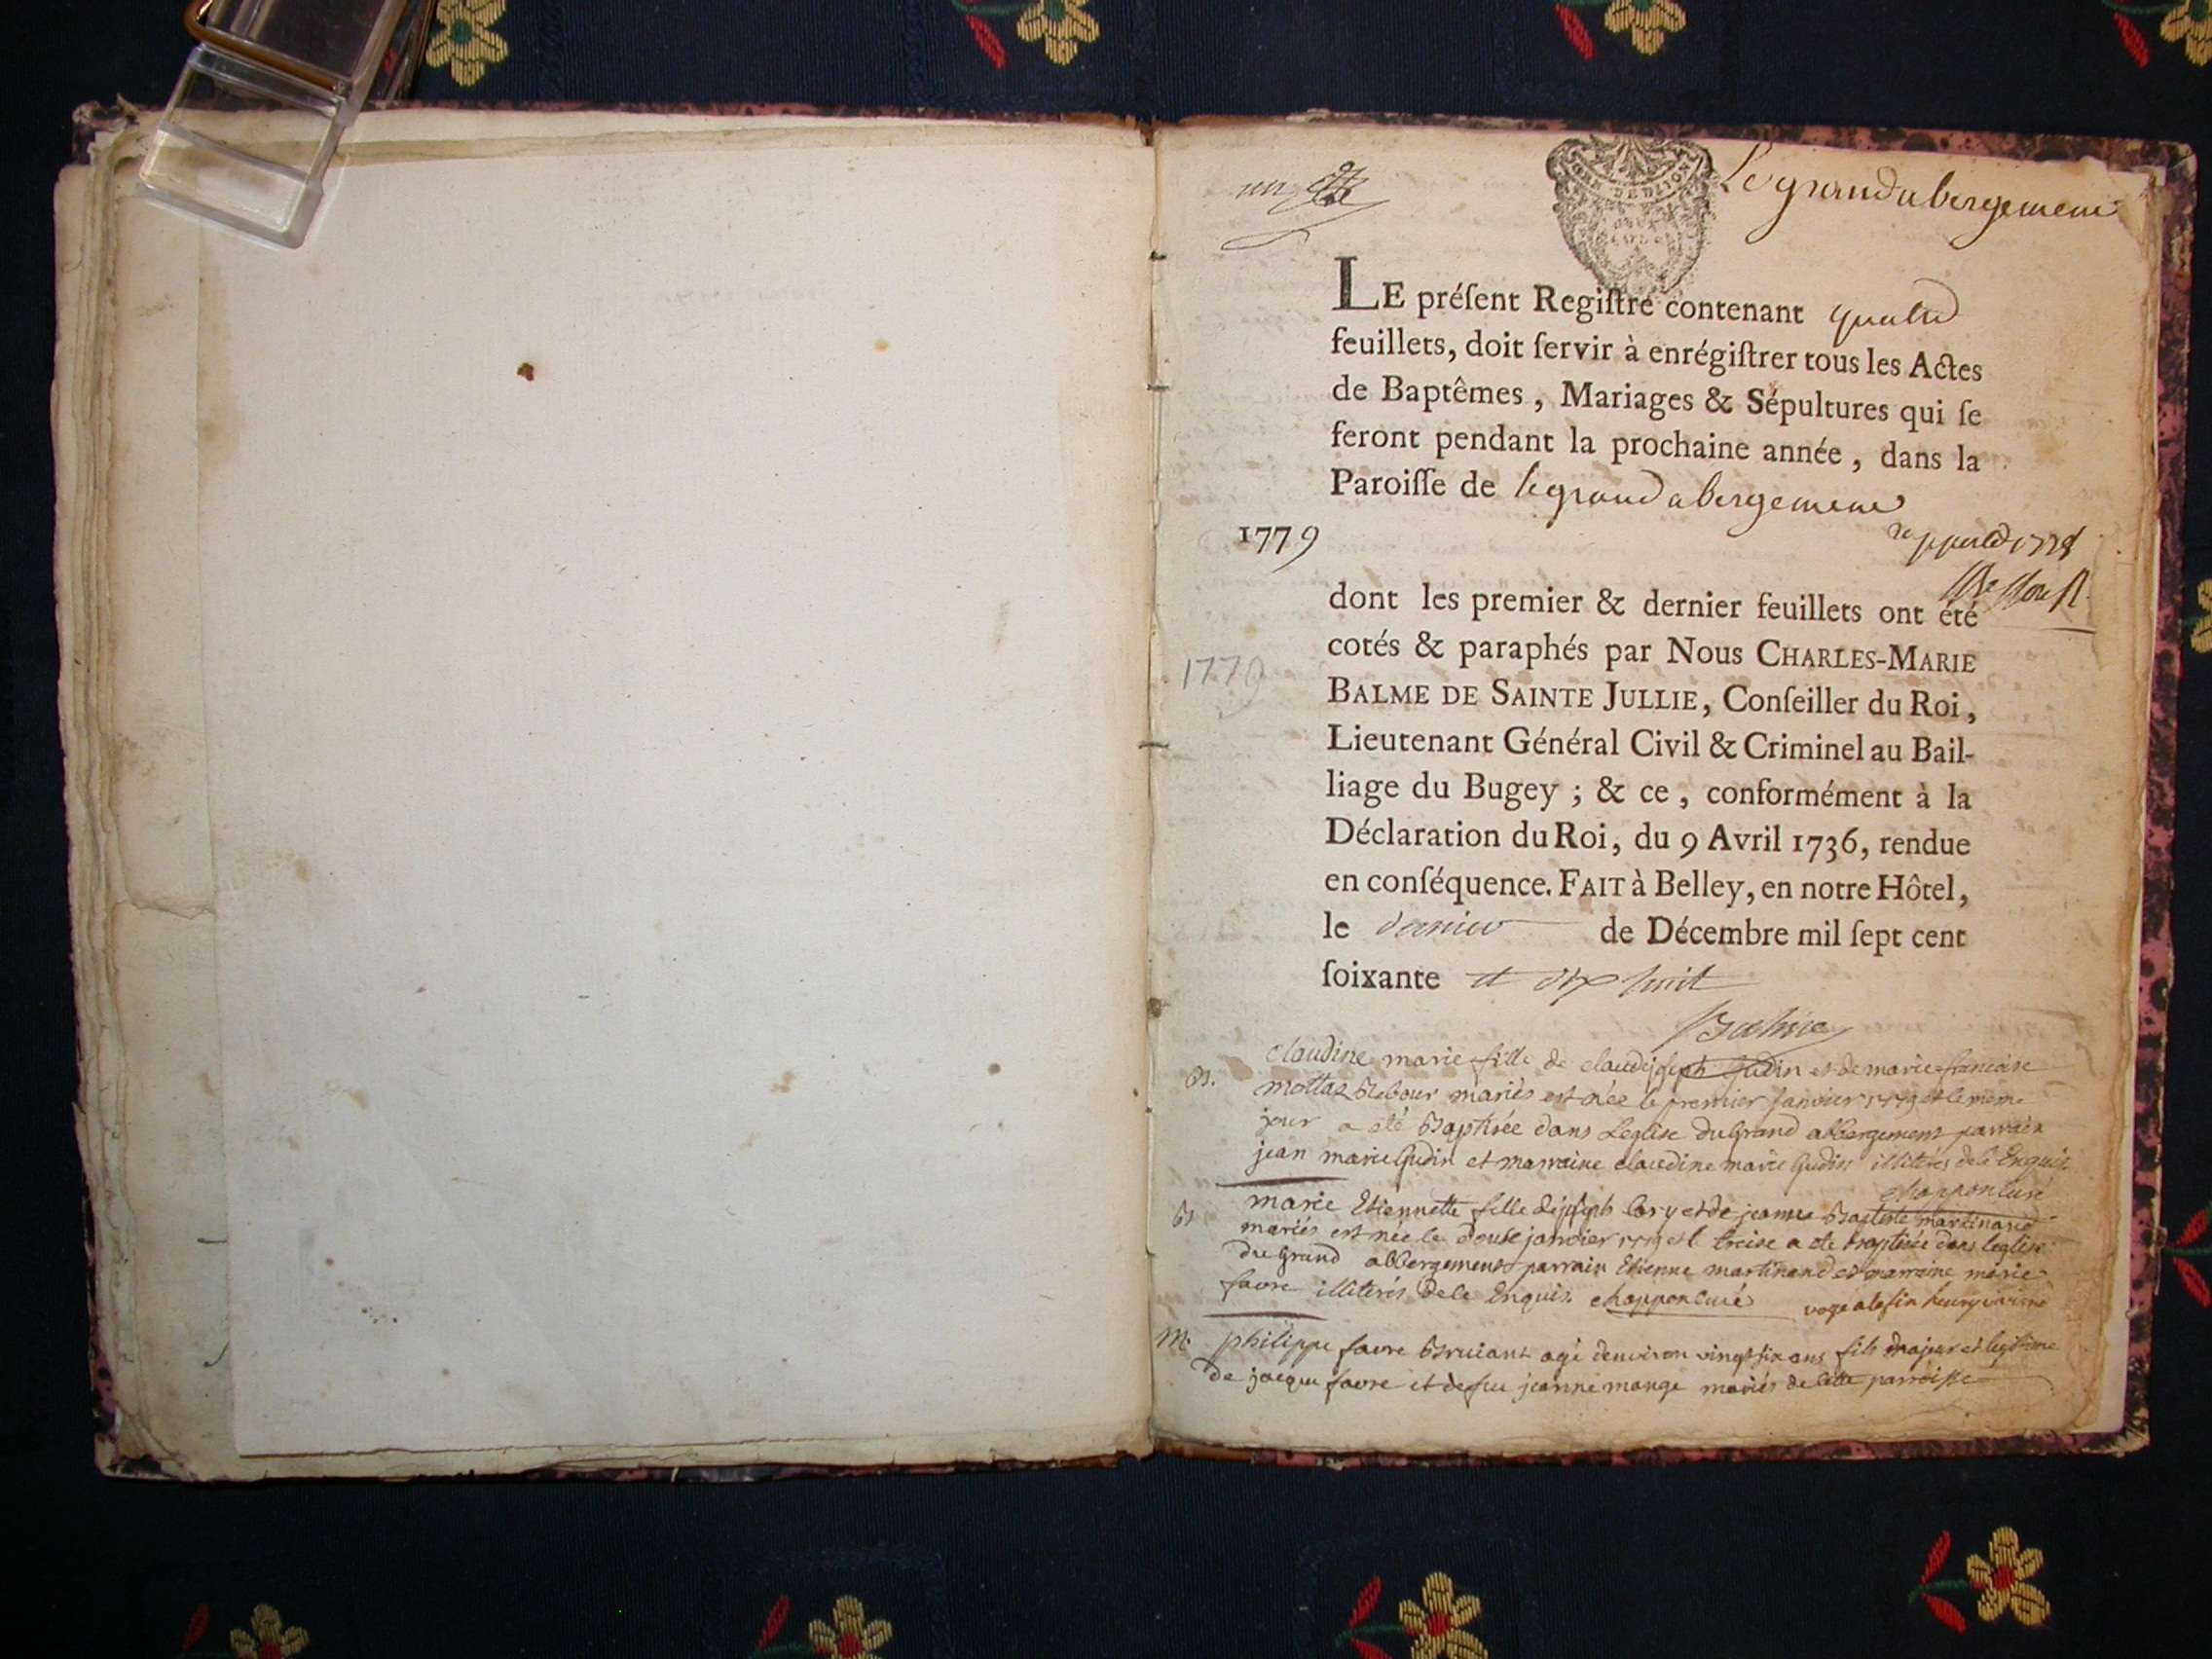 un
GEN. DE DIJON
DEUX
Le grand abergement
LE préſent Regiſtre contenant quatre
feuillets, doit ſervir à enrégiſtrer tous les Actes
de Baptêmes, Mariages & Sépultures qui ſe
feront pendant la prochaine année, dans la
Paroiſſe de le grand abergement
1779
dont les premier & dernier feuillets ont été
cotés & paraphés par Nous CHARLES-MARIE
1779
BALME DE SAINTE JULLIE, Conſeiller du Roi,
Lieutenant Général Civil & Criminel au Bail-
liage du Bugey ; & ce, conformément à la
Déclaration du Roi, du 9 Avril 1736, rendue
en conſéquence. FAIT à Belley, en notre Hôtel,
le dernier de Décembre mil ſept cent
ſoixante et dix huit
Balme
B. claudine marie fille de claude joseph Gudin et de marie francoise
mottaz mariés est née le premier janvier 1779 et le meme
jour a été Baptisée dans Leglise Du Grand abbergement parrain
jean marie Gudin et marraine claudine marie Gudin illiterés de ce Enquis
chappon curé
B marie Etiennette fille de joseph Cary et de jeanne Baptiste martinand
mariés est née le douse janvier 1779 et l treise a eté baptisée dans leglise
du Grand abbergement parrain Etienne martinand et marraine marie
favre illiterés de ce Enquis. chappon curé
M. philippe favre Bruiant agé denviron vingt six ans fils majeur et legitime
de jacque favre et de feu jeanne mange mariés de cette parroisse